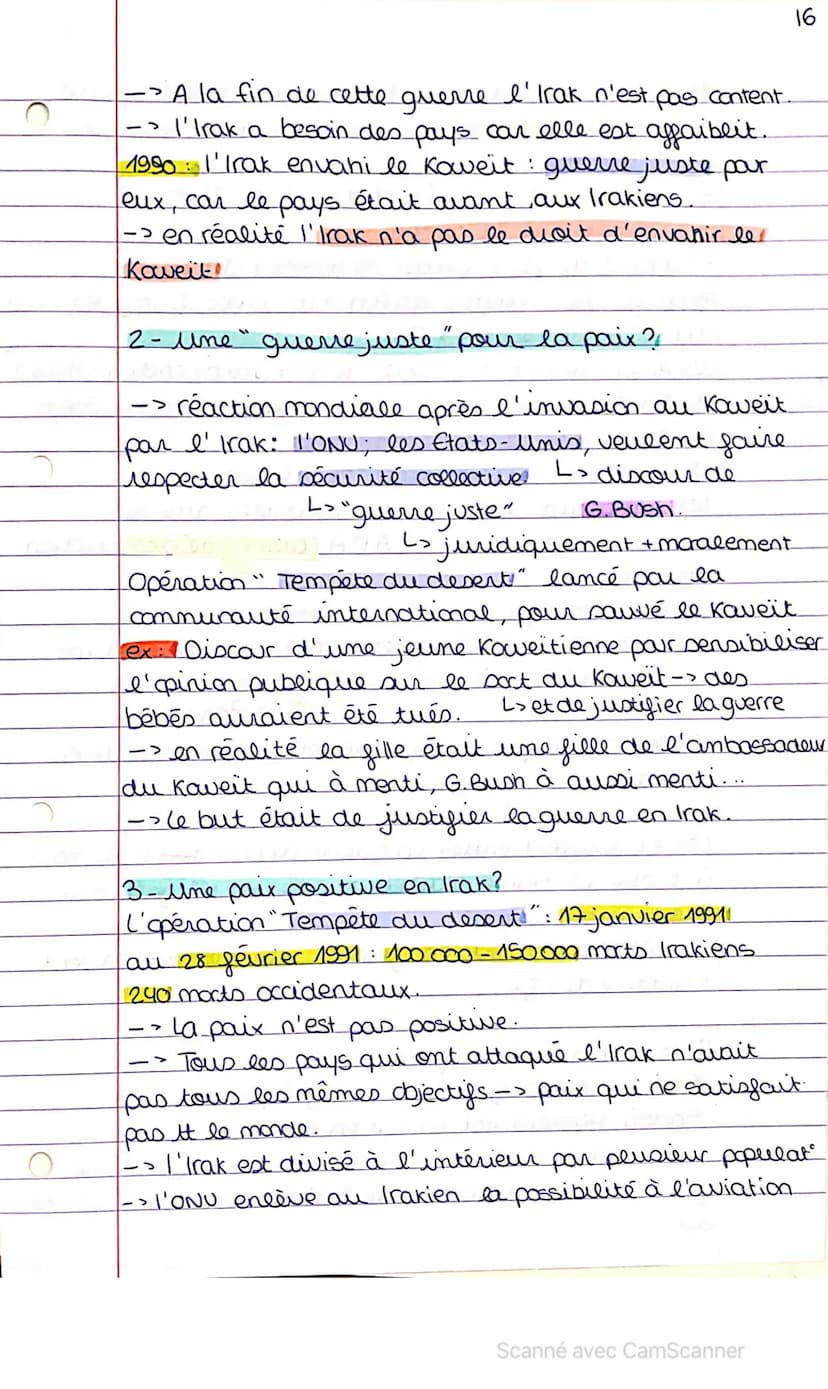 16
-> A la fin de cette guerre l'Irak n'est pas content.
-> l'Irak a besoin des pays car elle est affaiblit.
1990 : l'Irak envahi le Koweït : guerre juste par
eux, car le pays était avant aux Irakiens.
-> en réalité l'Irak n'a pas le droit d'envahir le
Koweït
2 - Une "guerre juste" pour la paix ?
-> réaction mondiale après l'invasion au Koweït
par l'Irak: l'ONU, les Etats-Unis, veulent faire
respecter la sécurité collective. ↳ discour de
↳ "guerre juste" G.Bush.
↳ juridiquement + moralement
Opération "Tempête du desert" lancé par la
communauté international, pour sauvé le Kaweït
ex: Discour d'une jeune Koweïtienne par sensibiliser
l'opinion publique sur le sort du Koweït -> des
bébés auraient été tués. ↳ et de justifier la guerre
-> en réalité la fille était une fille de l'ambassadeur
du Kaweït qui à menti, G.Bush à aussi menti...
-> Le but était de justifier la guerre en Irak.
3 - Une paix positive en Irak?
L'opération "Tempête du desert" : 17 janvier 1991
au 28 février 1991 : 100 000 - 150 000 morts Irakiens
240 morts occidentaux.
-> La paix n'est pas positive.
-> Tous les pays qui ont attaqué l'Irak n'avait
pas tous les mêmes objectifs -> paix qui ne satisfait
pas tt le monde.
-> l'Irak est divisé à l'intérieur par plusieur populat°
-> l'ONU enlève au Irakien la possibilité à l'aviation
Scanné avec CamScanner